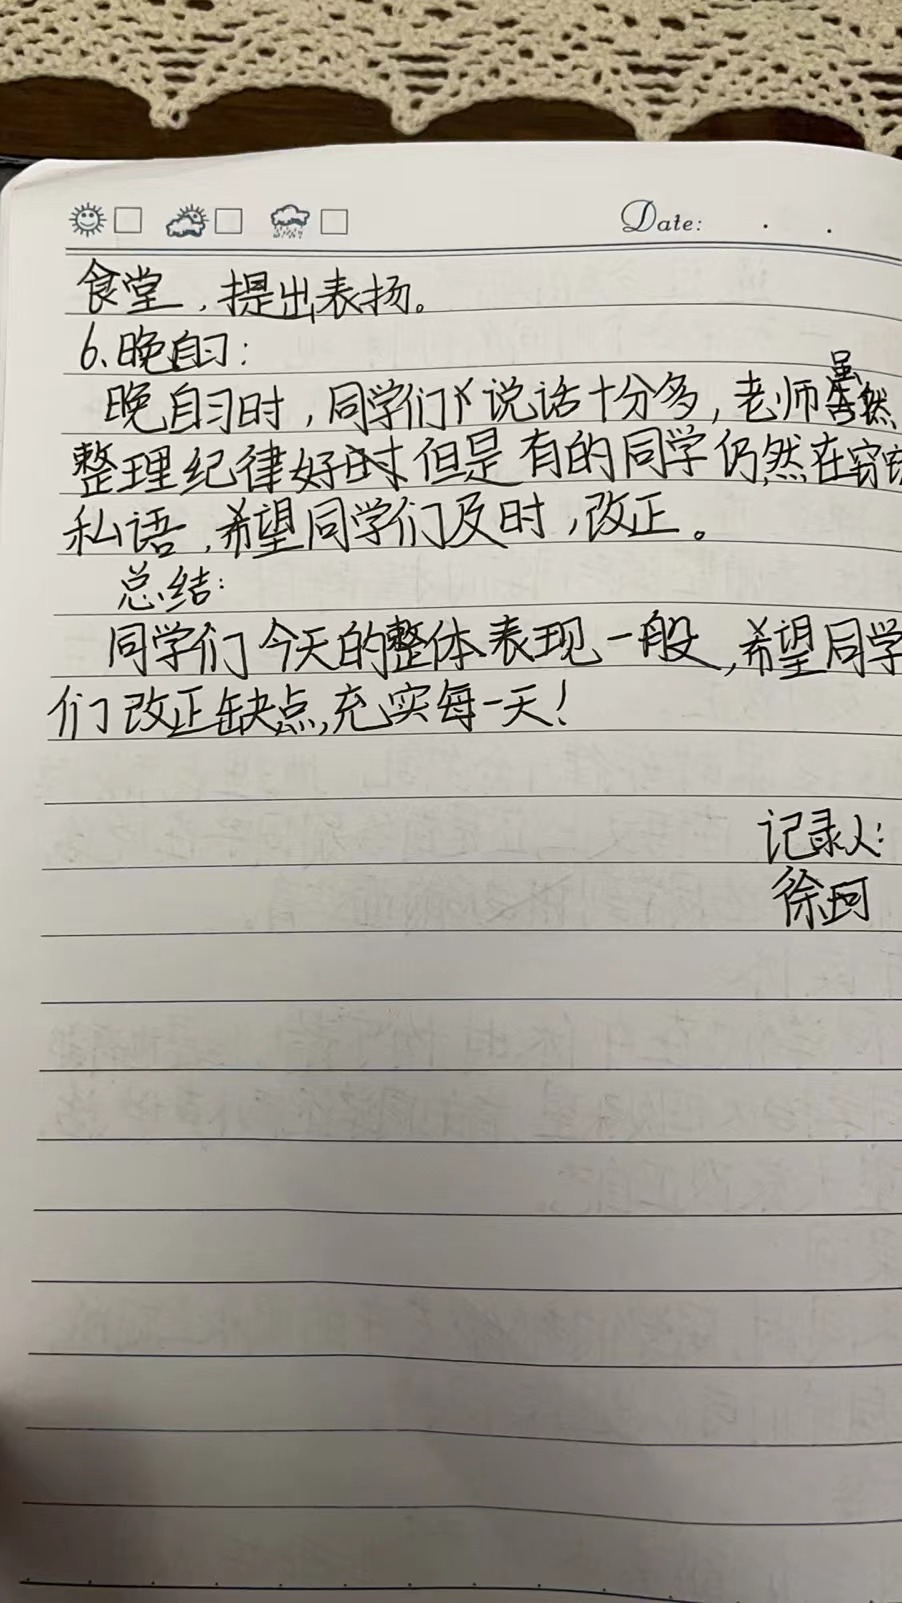 Date: . .
食堂,提出表扬。
6、晚自习:
晚自习时,同学们说话十分多,老师虽然
整理纪律好时但是有的同学仍然在窃窃
私语,希望同学们及时,改正。
总结:
同学们今天的整体表现一般,希望同学
们改正缺点,充实每一天!
记录人:
徐珂